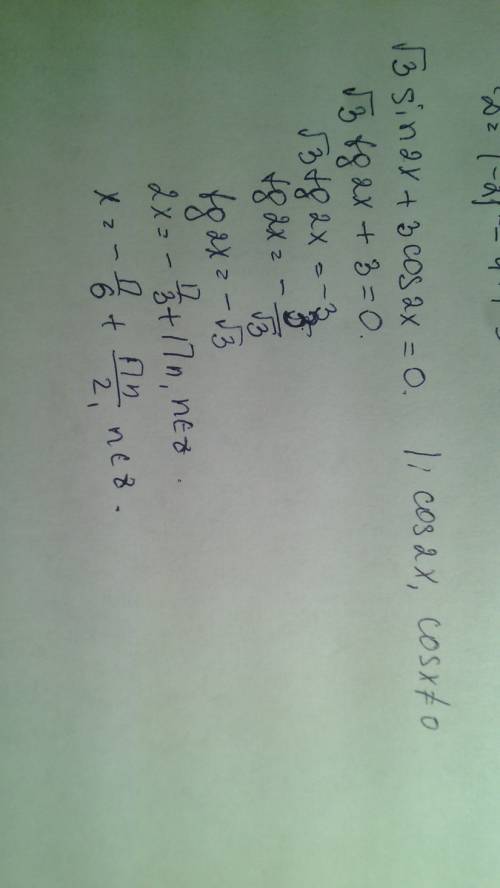 √3 sin2x + 3 cos2x = 0. |: cos2x, cosx ≠ 0
√3 tg 2x + 3 = 0.
√3 tg 2x = -3
tg 2x = -3/√3
tg 2x = -√3
2x = -П/3 + Пn, n∈z.
x = -П/6 + Пn/2, n∈z.